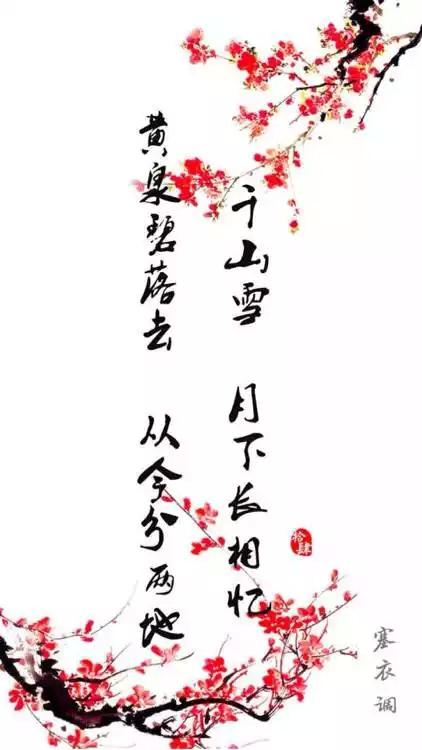 千山雪 月下长相忆
黄泉碧落去 从今分两地
拾肆
塞衣调